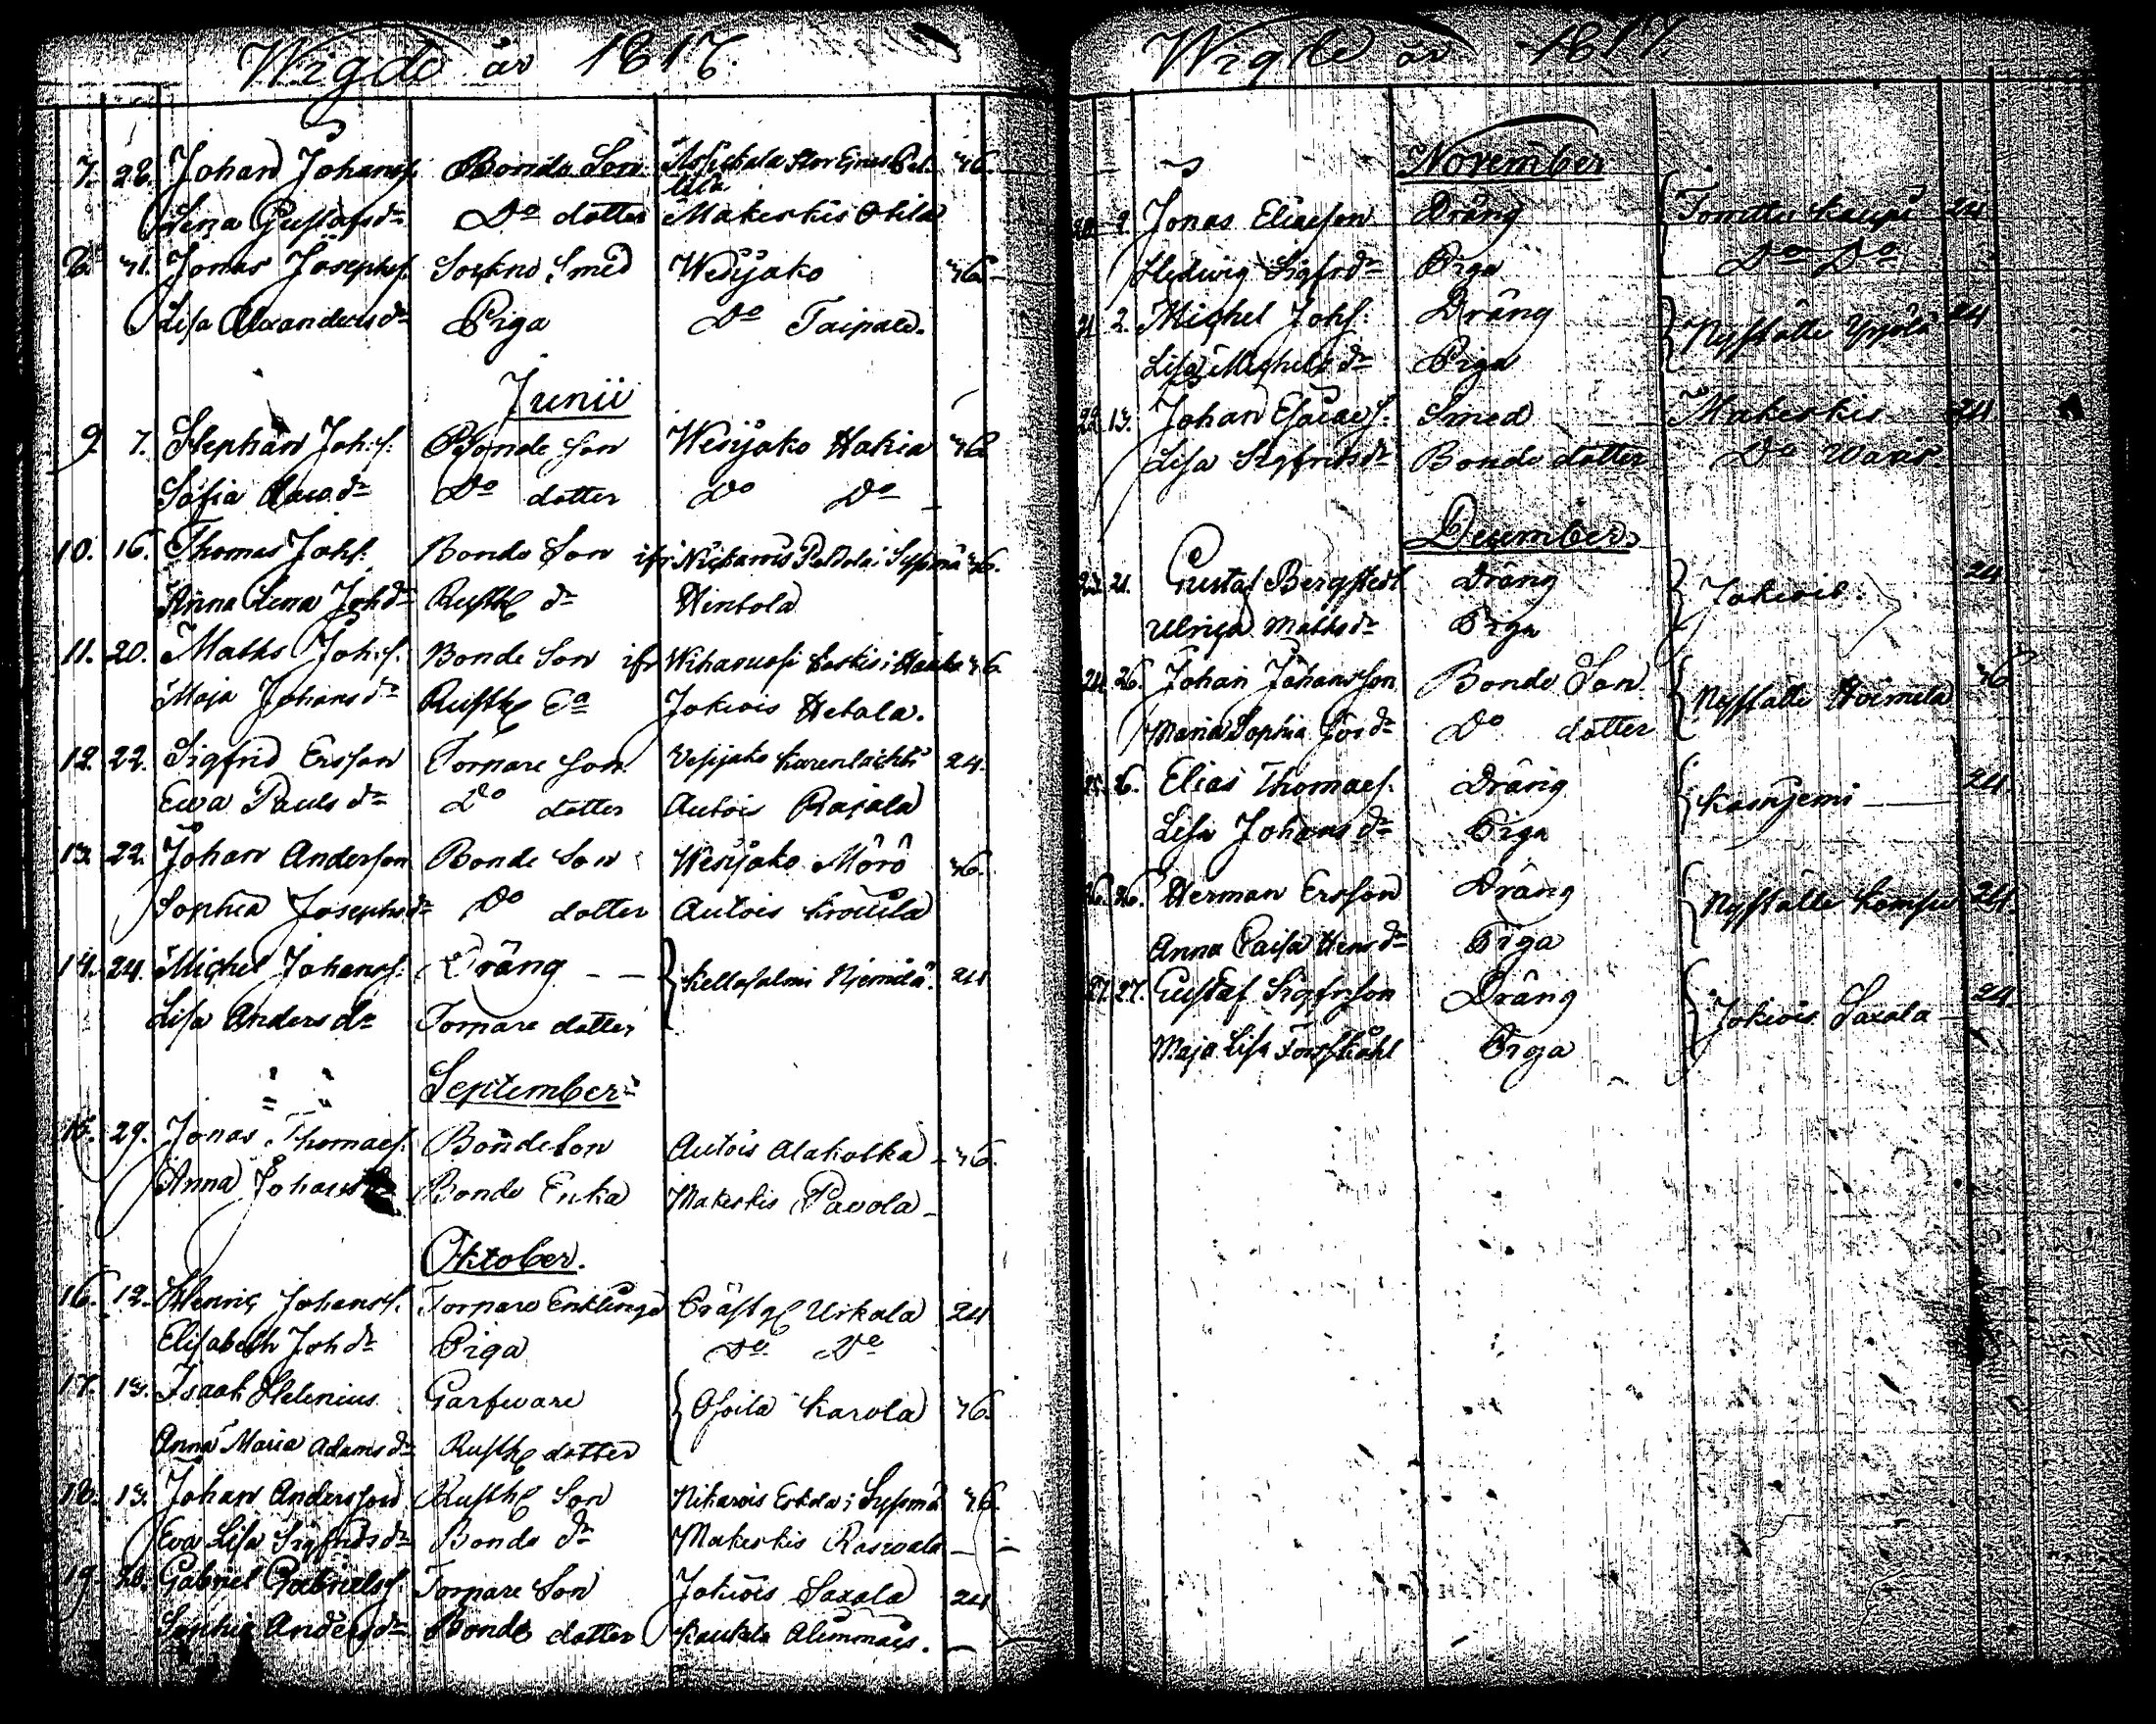 Wigde år 1817.
7. 28. Johan JohansS. Bonde Son 36.
Lena Gustafsdr Do dotter Makeskis Otila
8. 31. Jonas JosephsS. Sockne Smed Wesijako 36
Lisa Alexandersdr Piga Do Taipale.
Junii
9. 7. Stephan Joh:S. Bonde Son Wesijako Hakia 36
Sofia dr Do dotter Do Do
10. 16. Thomas JohS. Bonde Son ifr Sysmä 36.
Anna Lena Johdr Rusth dr Hintola
11. 20. Maths Joh:S. Bonde Son ifr 36
Maja Johansdr Rusth Jokiois Hetala.
12. 22. Sigfrid Ersson Torpare Son Vesijako Karenlachti 24.
Ewa Paulsdr Do dotter Autois Rajala
13. 22. Johan Anderson Bonde Son Wesijako Mörö 36.
Sophia Josephsdr Do dotter Autois Krouila
14. 24. Michel JohansS. Dräng Kellosalmi Njemilä. 24
Lisa Andersdr Torpare dotter
September
15. 29. Jonas ThomaeS. Bonde Son Autois Alakolka 36.
Anna Bonde Enka Makeskis Pavola
Oktober.
16. 12. Henric JohansS. Torpare Enklinge Prästg Urkala 24
Elisabeth Johdr Piga Do Do
17. 13. Isaak Helenius Garfware Osoila Karola 36.
Anna Maria Adamsdr Rusth dotter
18. 13. Johan Andersson Rusth Son Nikarois Eskola i Sysmä 36
Eva Lisa Sigfridsdr Bonde dr Makeskis Raswala
19. 26. Gabriel GabrielsS. Torpare Son Jokiois Saxala 24
Sophia Andersdr Bonde dotter Kaukela Alimmais.
Wigde år 1817.
November
20. 2. Jonas Eliaeson Dräng Torrittu Kaupi 24
Hedwig Sigfrdr Piga Do Do
21. 2. Michel JohS. Dräng Nystälte Yppölä 24
Lisa Michelsdr Piga
22. 13. Johan EsaiaeS. Smed Makeskis 24
Lisa Sigfridsdr Bonde dotter Do Waris
December
23. 21. Gustaf Bergstedt Dräng Jokiois 24
Ulrica Mathsdr Piga
24. 26. Johan Johansson Bonde Son Nystälte Hoimela 36
Maria Sophia Jördr Do dotter
25. 26. Elias ThomaeS. Dräng Kasnjemi 24.
Lisa Johansdr Piga
26. 26. Herman Ersson Dräng Nystälte 24.
Anna Caisa Hensdr Piga
27. 27. Gustaf Sigfrson Dräng Jokiois Saxala 24
Maja Lisa Forsståhl Piga